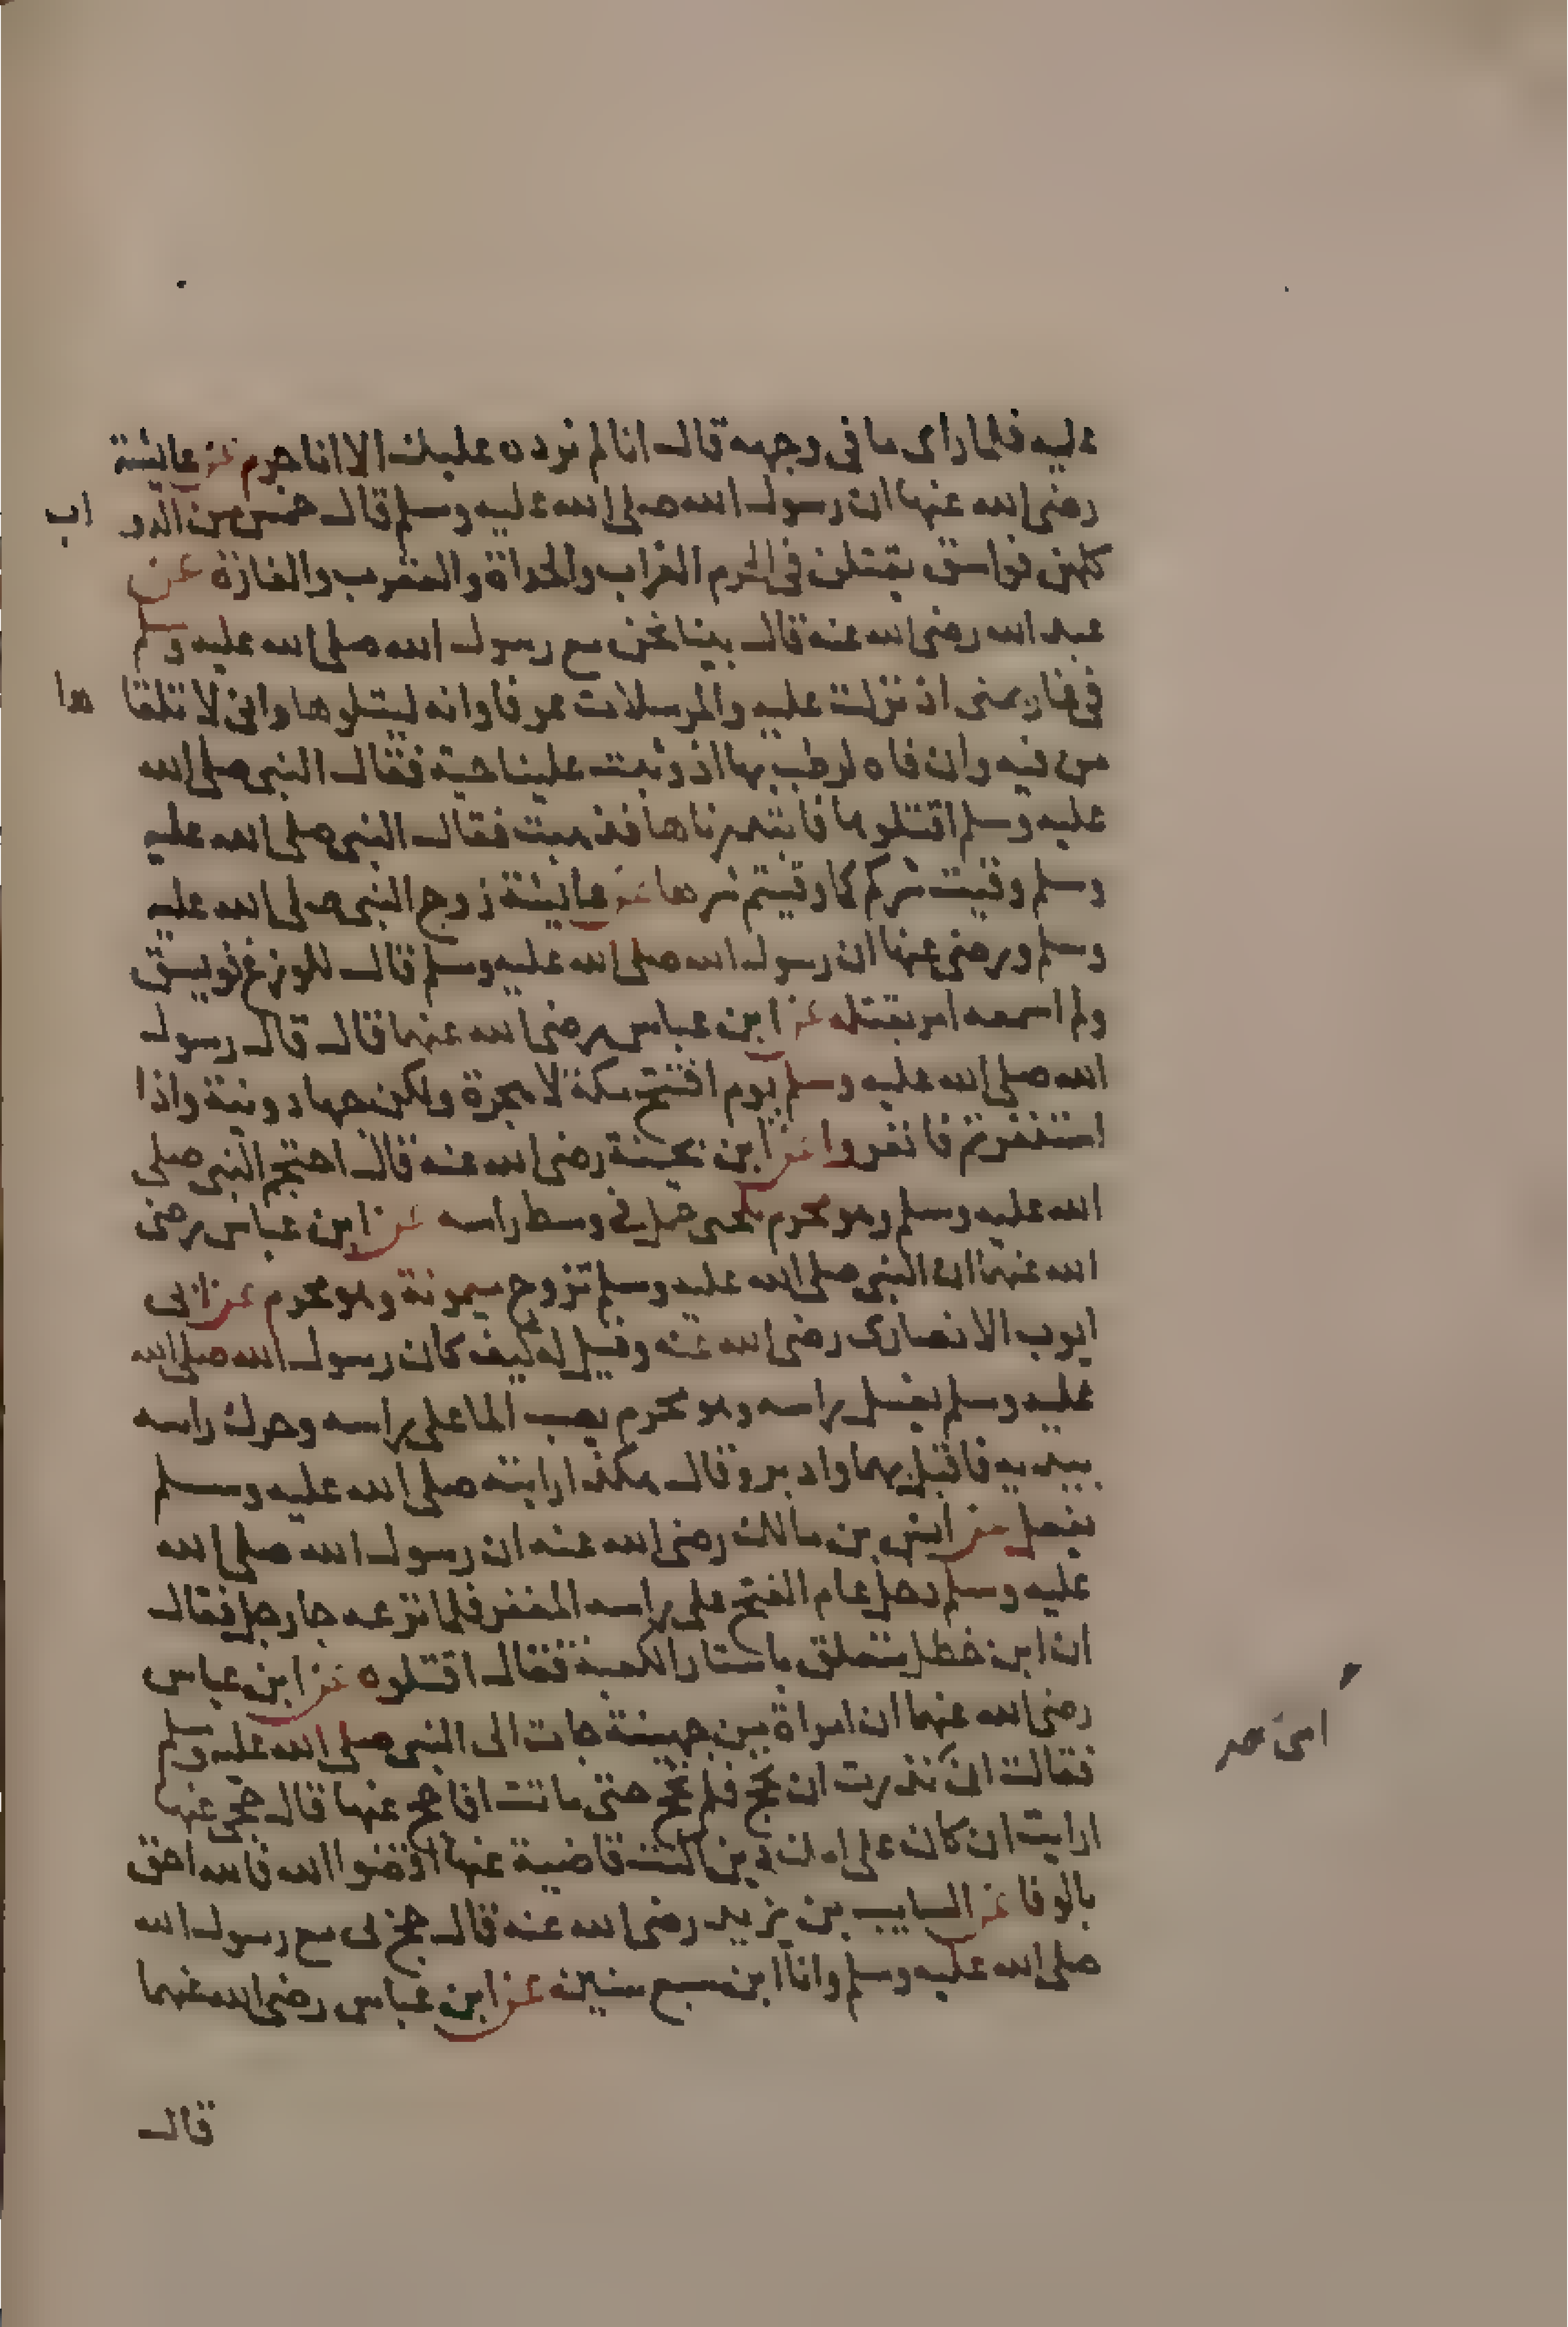 عليه فلما راى ما فى وجهه قال انا لم نرده عليك الا انا حرم عن عايشة
رضى الله عنها ان رسول الله صلى الله عليه وسلم قال خمس من الدو
اب
كلهن فواسق يقتلن فى الحرم الغراب والحداة والعقرب والفارة عن
عبد الله رضى الله عنه قال بينا نحن مع رسول الله صلى الله عليه وسلم
فى غار بمنى اذ نزلت عليه والمرسلات عرفا وانه ليتلوها وانى لا تلقا
ها
من فيه وان فاه لرطب بها اذ وثبت علينا حية فقال النبى صلى الله
عليه وسلم اقتلوها فابتدرناها فذهبت فقال النبى صلى الله عليه
وسلم وقيت شركم كما وقيتم شرها عن عايشة زوج النبى صلى الله عليه
وسلم ورضى عنها ان رسول الله صلى الله عليه وسلم قال للوزغ فويسق
ولم اسمعه امر بقتله عن ابن عباس رضى الله عنهما قال قال رسول
الله صلى الله عليه وسلم يوم افتتح مكة لا هجرة ولكن جهاد ونية واذا
استنفرتم فانفروا عن ابن بحينة رضى الله عنه قال احتجم النبى صلى
الله عليه وسلم وهو محرم بلحى جمل فى وسط راسه عن ابن عباس رضى
الله عنهما ان النبى صلى الله عليه وسلم تزوج ميمونة وهو محرم عن ابى
ايوب الانصارى رضى الله عنه وقيل له كيف كان رسول الله صلى الله
عليه وسلم يغسل راسه وهو محرم يصب الما على راسه وحرك راسه
بيديه فاقبل بهما وادبر وقال هكذا رايته صلى الله عليه وسلم
يفعل عن انس بن مالك رضى الله عنه ان رسول الله صلى الله
عليه وسلم دخل عام الفتح على راسه المغفر فلما نزعه جا رجل فقال
ان ابن خطل متعلق باستار الكعبة فقال اقتلوه عن ابن عباس
رضى الله عنهما ان امراة من جهينة جات الى النبى صلى الله عليه وسلم
فقالت ان نذرت ان تحج فلم تحج حتى ماتت افاحج عنها قال حجى عنها
ارايت ان كان على امك دين اكنت قاضية عنها اقضوا الله فالله احق
بالوفا عن السايب بن يزيد رضى الله عنه قال حج بى مع رسول الله
صلى الله عليه وسلم وانا ابن سبع سنين عن ابن عباس رضى الله عنهما
قال